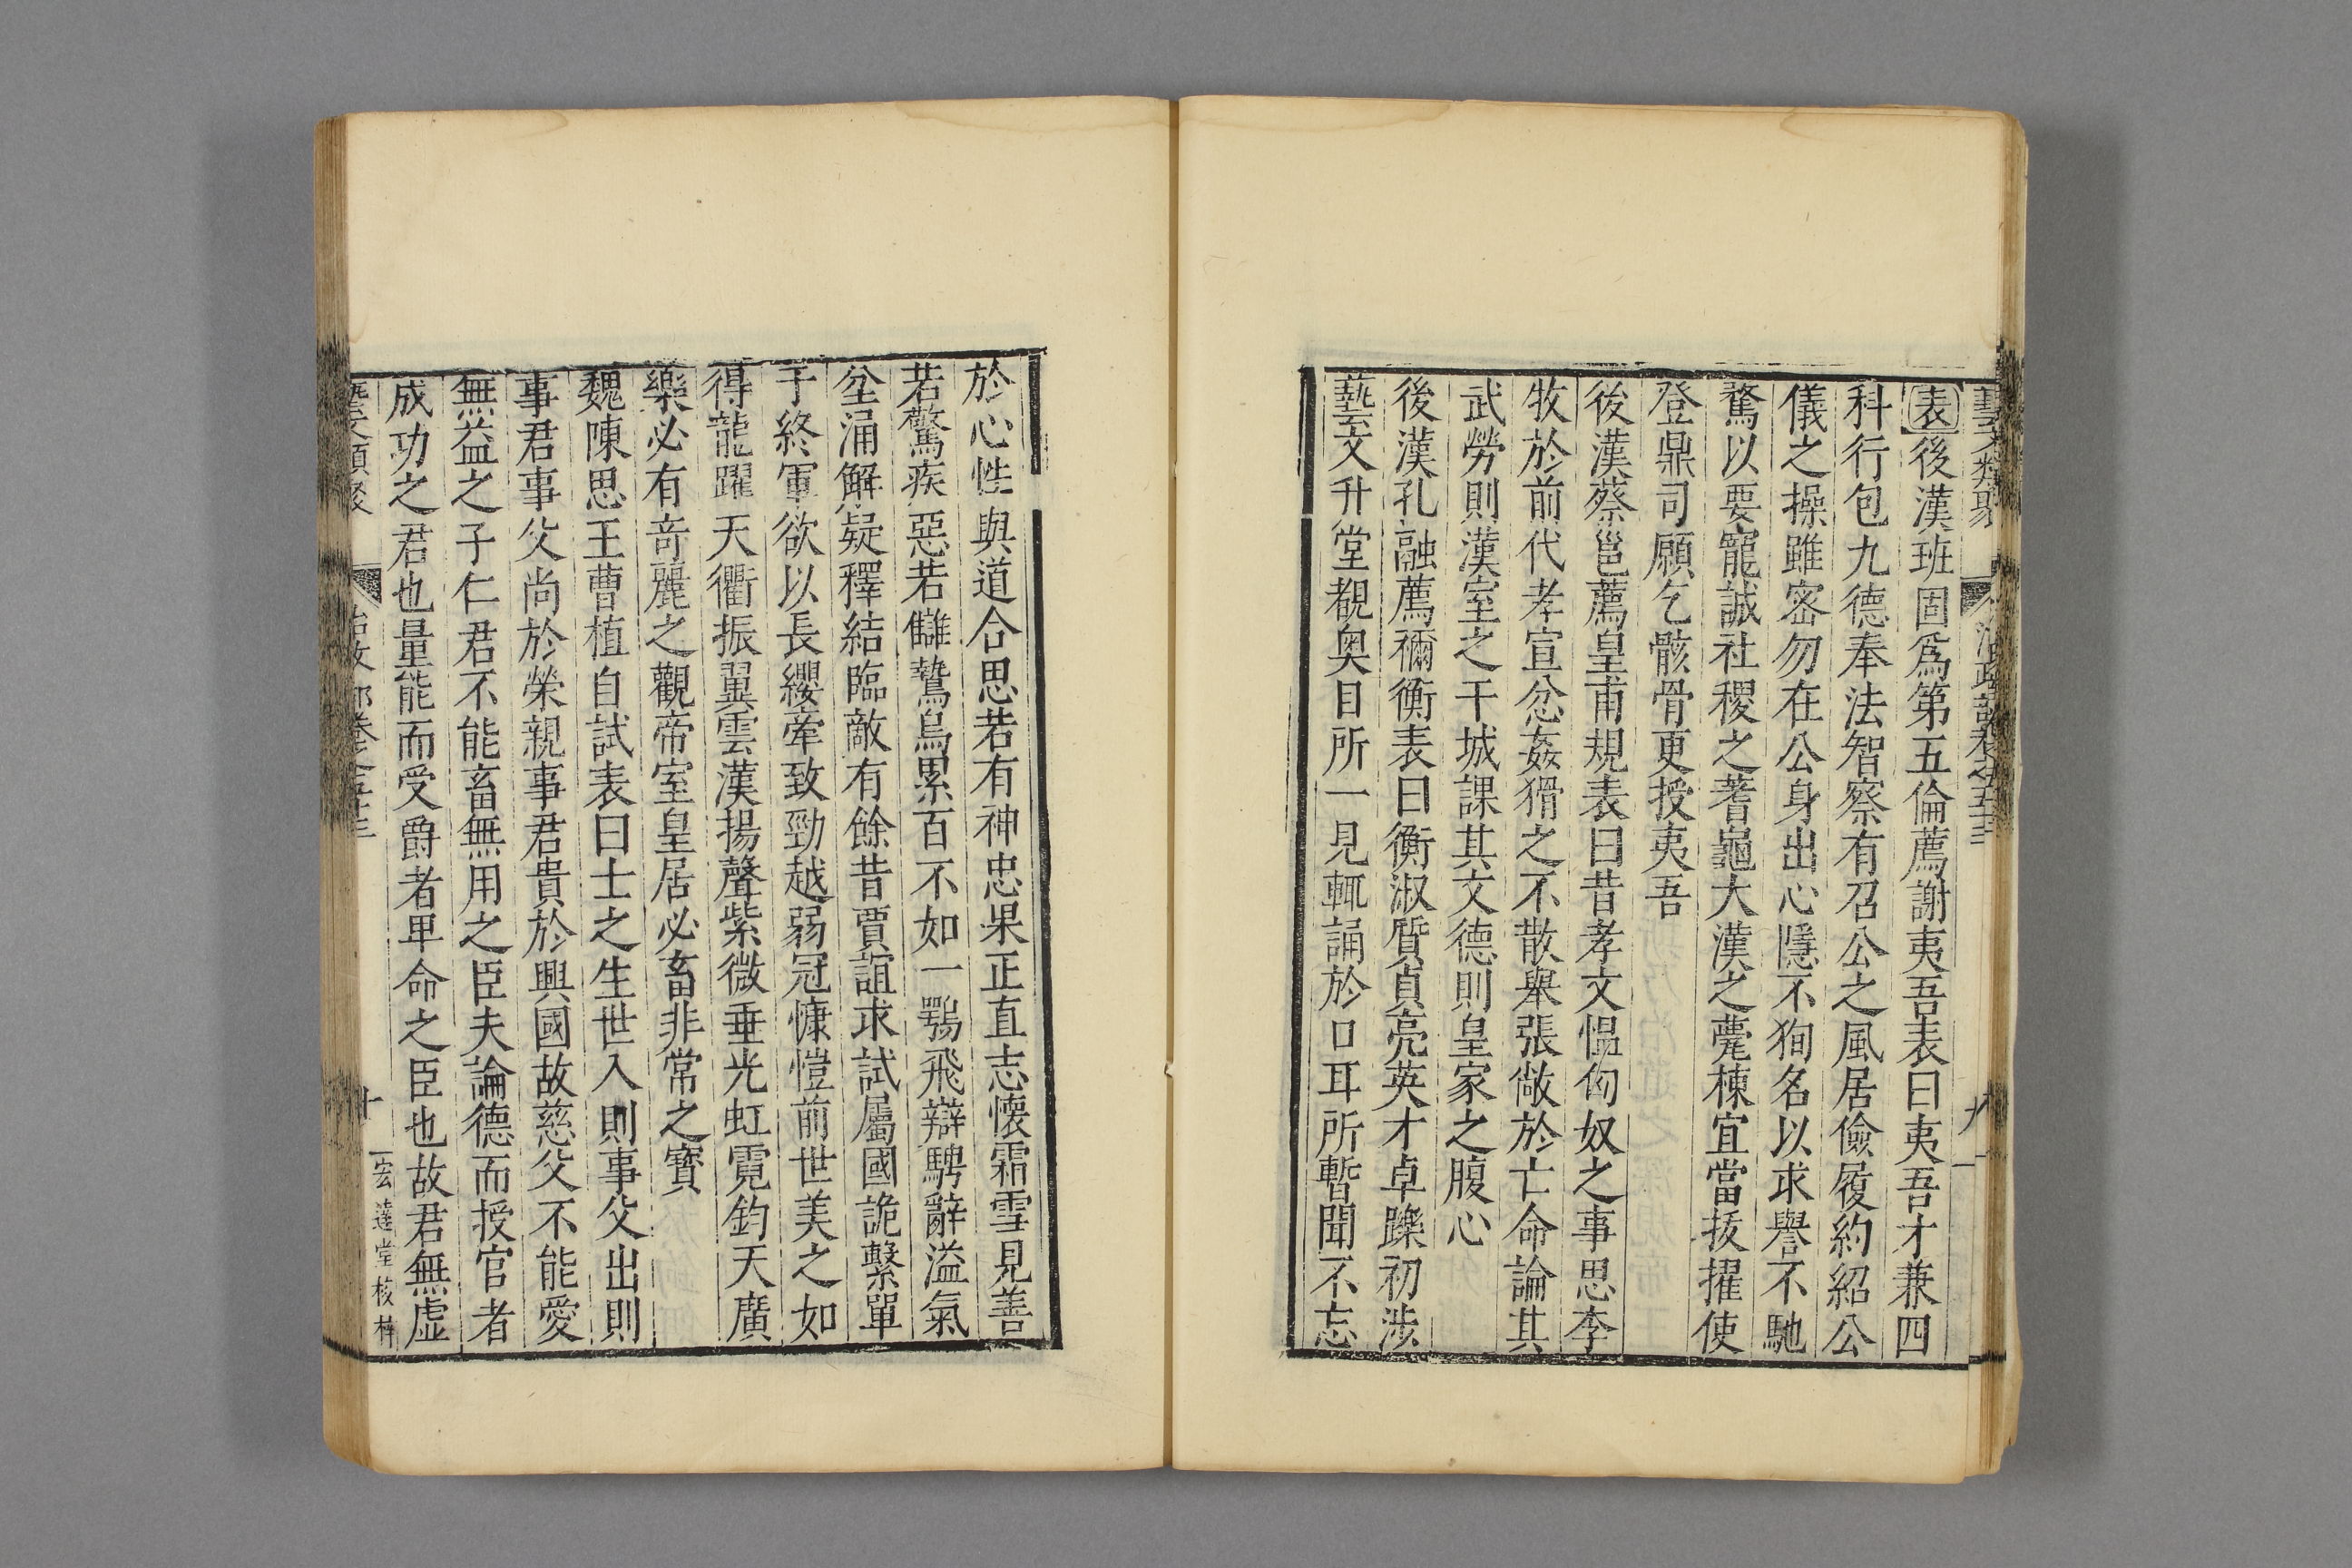 藝文類聚 治政部卷之五十三 九
表後漢班固爲第五倫薦謝夷吾表曰夷吾才兼四
科行包九德奉法智察有召公之風居儉履約紹公
儀之操雖密勿在公身出心隱不狥名以求譽不馳
騖以要寵誠社稷之蓍龜大漢之甍棟宜當拔擢使
登鼎司願乞骸骨更授夷吾
後漢蔡邕薦皇甫規表曰昔孝文慍匈奴之事思李
牧於前代孝宣忿姦猾之不散舉張敞於亡命論其
武勞則漢室之干城課其文德則皇家之腹心
後漢孔融薦禰衡表曰衡淑質貞亮英才卓躒初涉
藝文升堂覩奥目所一見輒誦於口耳所暫聞不忘
於心性與道合思若有神忠果正直志懷霜雪見善
若驚疾惡若讎鷙鳥累百不如一鶚飛辯騁辭溢氣
坌涌解疑釋結臨敵有餘昔賈誼求試屬國詭繫單
于終軍欲以長纓牽致勁越弱冠慷愷前世美之如
得龍躍天衢振翼雲漢揚聲紫微垂光虹霓鈞天廣
樂必有奇麗之觀帝室皇居必畜非常之寶
魏陳思王曹植自試表曰士之生世入則事父出則
事君事父尚於榮親事君貴於興國故慈父不能愛
無益之子仁君不能畜無用之臣夫論德而授官者
成功之君也量能而受爵者畢命之臣也故君無虛
藝文類聚 治政部卷之五十三 十 宏達堂校梓